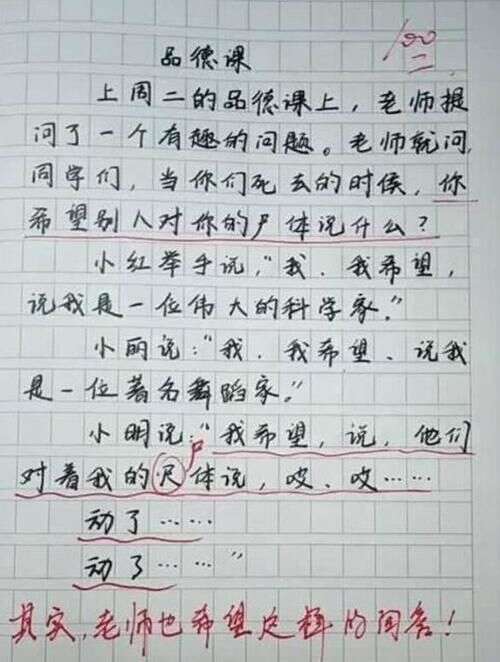 100
品德课
上周二的品德课上，老师提
问了一个有趣的问题。老师就问，
同学们，当你们死去的时候，你
希望别人对你的尸体说什么？
小红举手说，"我．我希望，
说我是一位伟大的科学家。"
小丽说："我．我希望、说我
是一位著名舞蹈家。"
小明说："我希望，说，他们
尸
对着我的尺体说，哎、哎……
动了……
动了……"
其实，老师也希望是这样的回答！